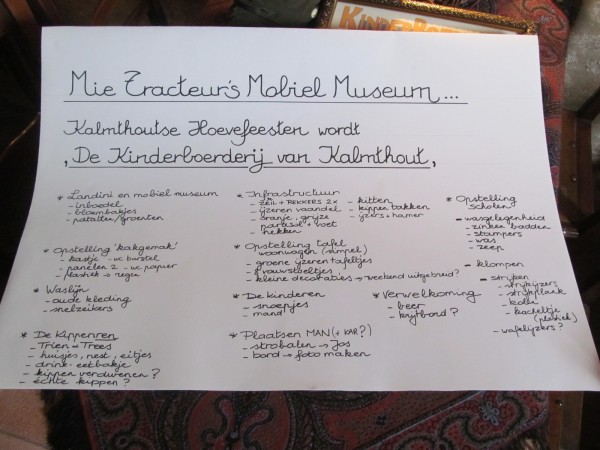 KINDERBO
Mie Tracteur's Mobiel Museum...
Kalmthoutse Hoevefeesten wordt
'De Kinderboerderij van Kalmthout,
* Landini en mobiel museum
- inboedel
- bloembakjes
- patatten/groenten
* Opstelling 'kakgemak'
- kastje - wc borstel
- panelen 2 - wc papier
- plastiek → regen
* Waslijn
- oude kleding
- snelzeikers
* De Kippenren
- Trien = Trees
- huisjes, nest, eitjes
- drink- eetbakje
- kippen verdwenen?
- echte kippen?
* Infrastructuur
- zeil + REKKERS 2x
- ijzeren vaandel
- oranje, grijze
parasol + voet
- hekken
- kitten
- kippen bakken
- ijzers + hamer
* Opstelling tafel
woonwagen (simpel)
- groene ijzeren tafeltjes
- vouwstoeltjes
- kleine decoraties → weekend uitgebreid?
* De kinderen
- snoepjes
- mand
* Plaatsen MAN (+ KAR?)
- strobalen → Jos
- bord → foto maken
* Verwelkoming
- beer
- krijtbord?
* Opstelling
Scholen
- wasgelegenheid
- zinken badden
- stampers
- was
- zeep
- klompen
- strijken
- strijkijzers
- strijkplank
- kolen
- kacheltje
(plastiek)
- wafelijzers?